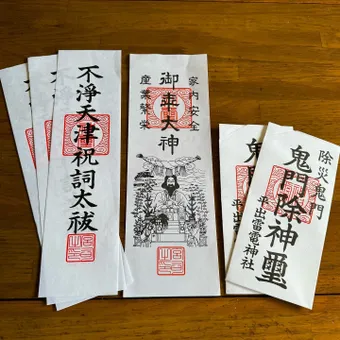 不淨天津祝詞太祓
家内安全
大神
産業繁栄
鬼
除災鬼門
鬼門除神璽
平出雷電神社